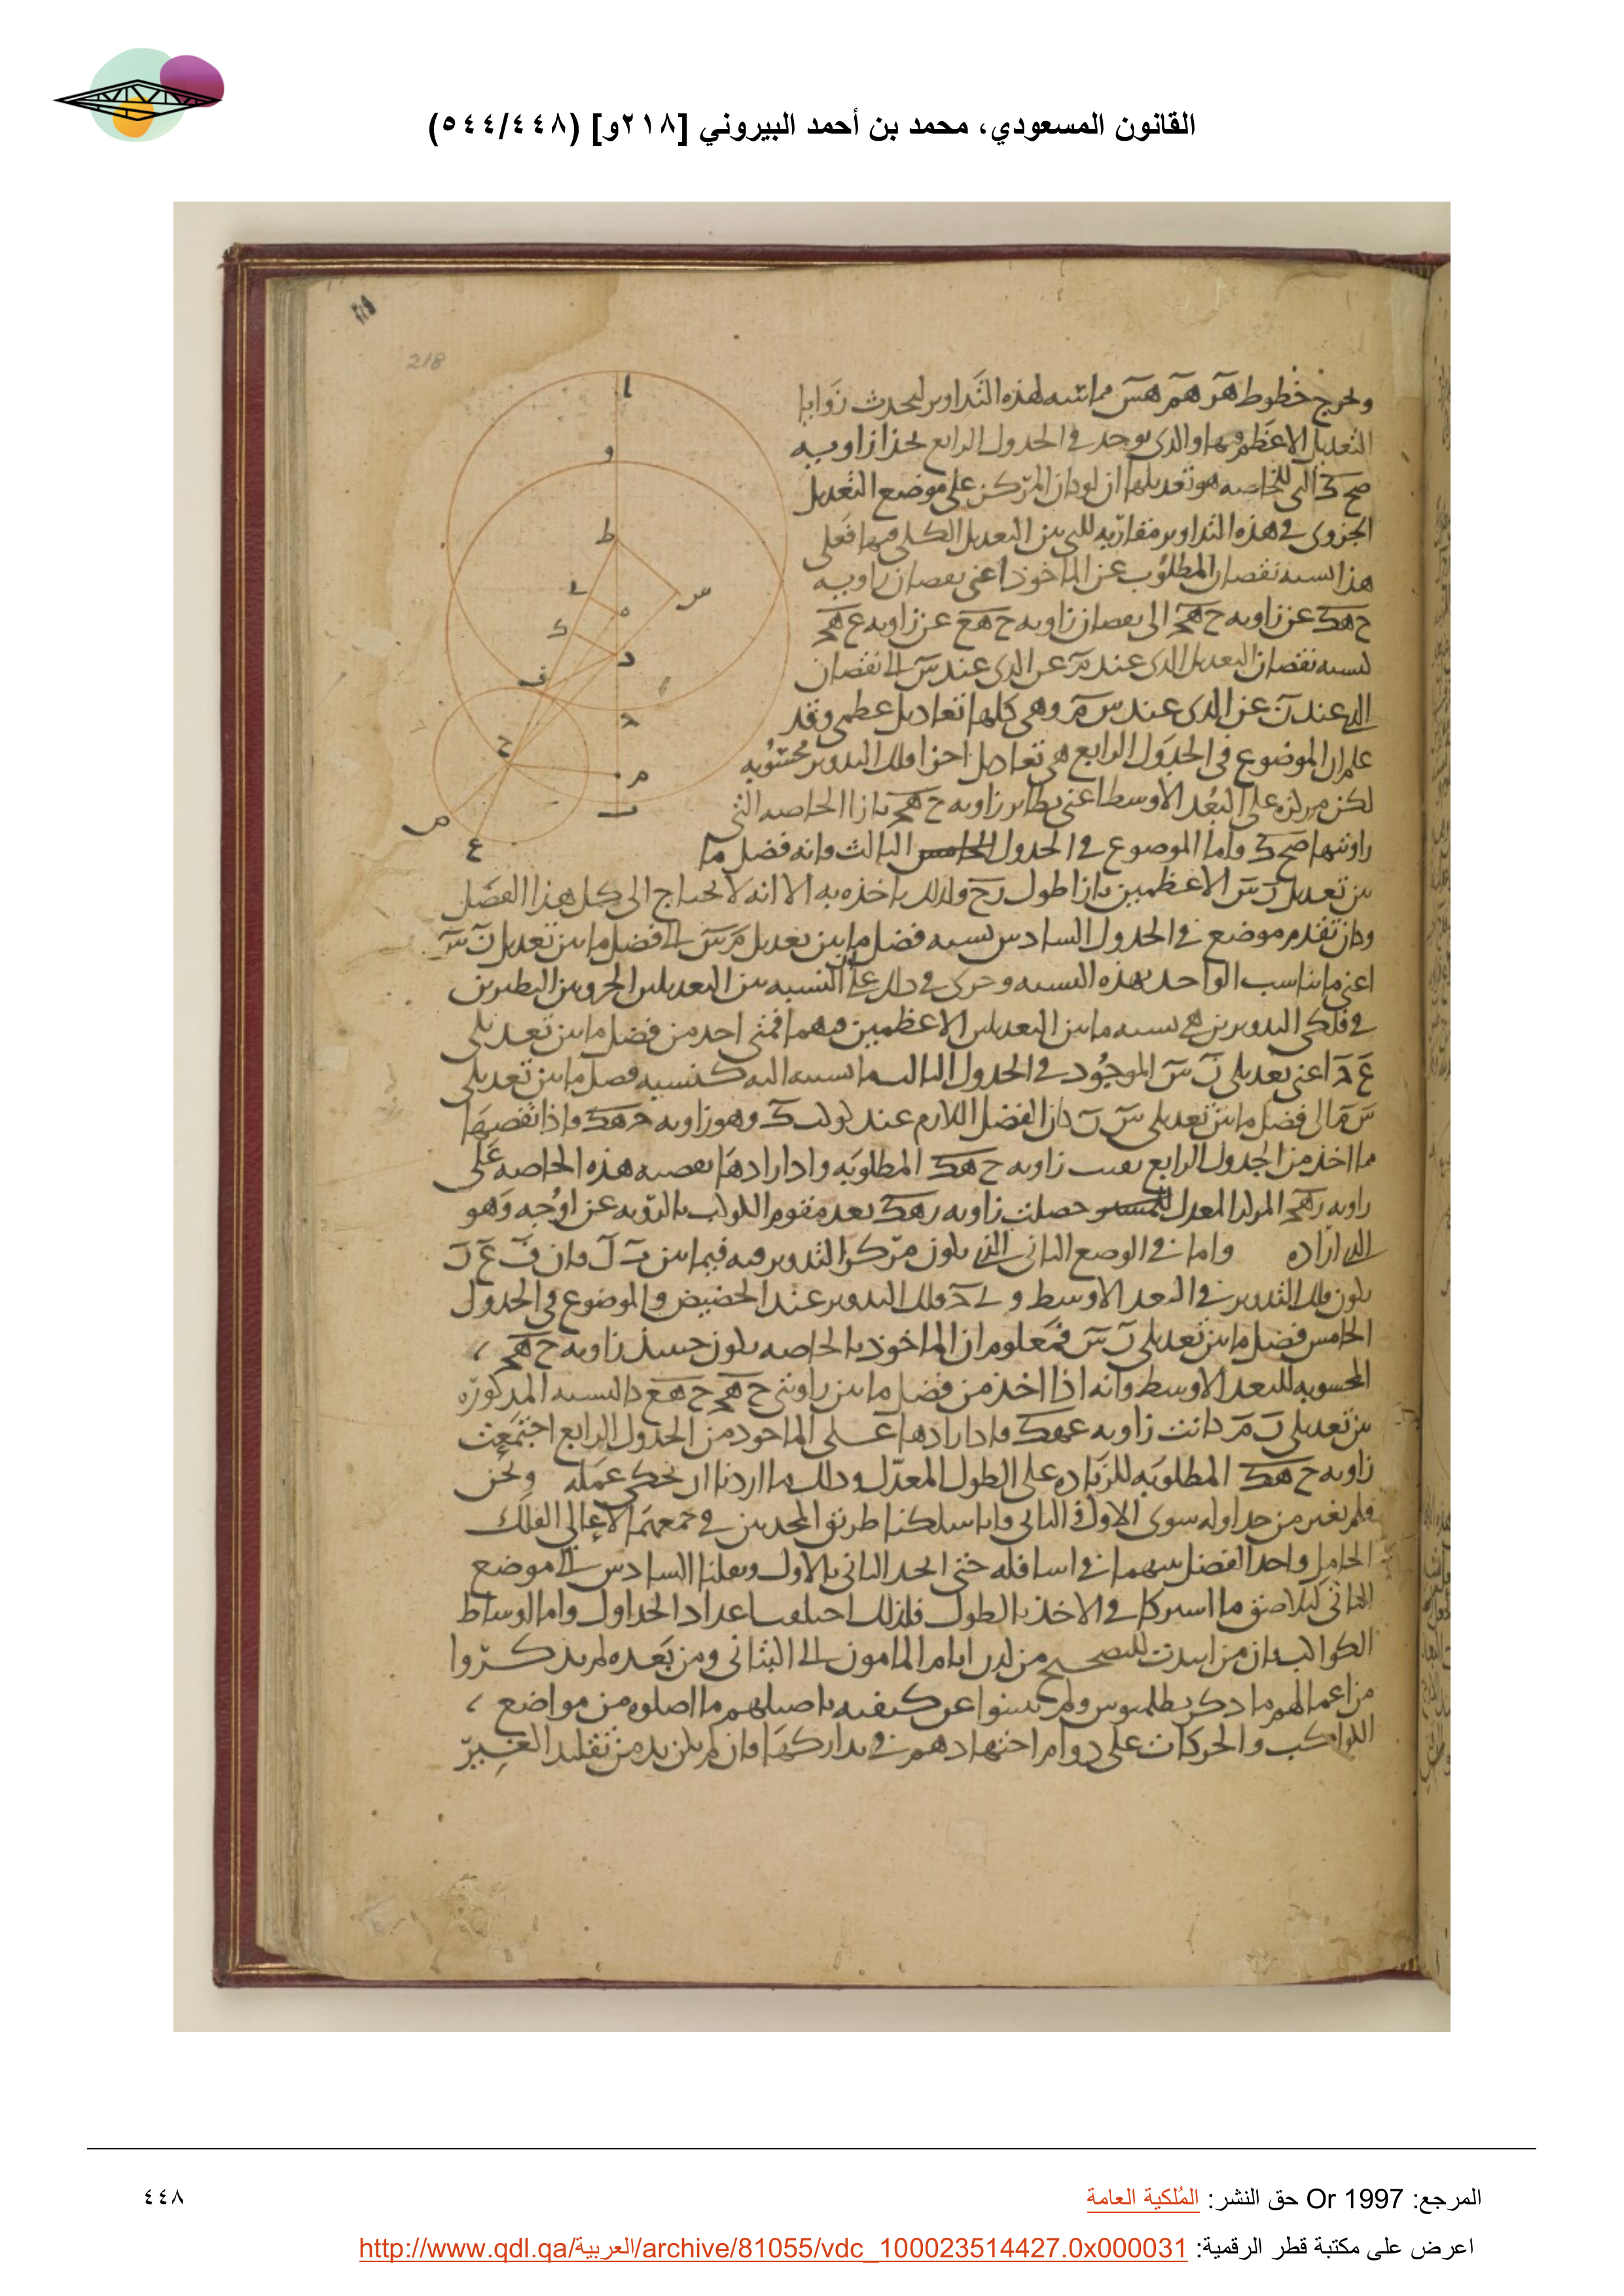 القانون المسعودي، محمد بن أحمد البيروني [٢١٨و] (٥٤٤/٤٤٨)
218
ونخرج خطوط هز هم هس مماسه لهذه التداوير ليحدث زوايا
التعديل الاعظم فيها والذى يوجد فى الجدول الرابع بحذا زاويه
صح ك التى للخاصه هو تعديلها ان لو كان المركز على موضع التعديل
الجزوى فى هذه التداوير مقاربه للتى بين التعديل الكلى فيها فعلى
هذا نسبه نقصان المطلوب عن الماخوذ اعنى نقصان زاويه
ح هك عن زاويه ح هج الى نقصان زاويه ح هع عن زاويه ع هج
كنسبه نقصان التعديل الذى عند م عن الذى عند س الى نقصان
الذى عند ن عن الذى عند س م وهى كلها تعاديل عظمى وقد
علم ان الموضوع فى الجدول الرابع هى تعاديل اجزا فلك التدوير محسوبه
لكن مركزه على البعد الاوسط اعنى نظاير زاويه ح هج بازا الخاصه التى
زاويتها صح ك واما الموضوع فى الجدول الخامس الثالث فانه فضل ما
بين تعديل ن س الاعظمين بازا طول زح ولذلك ياخذه به الا انه لا يحتاج الى كل هذا الفضل
وكان تقدم موضع فى الجدول السادس نسبه فضل ما بين تعديل م س الى فضل ما بين تعديل ن س
اعنى ما يناسب الواحد بهذه النسبه وجرى فى ذلك على ان النسبه بين التعديلين الجزويين النظيرين
فى فلكى التدويرين هى نسبه ما بين التعديلين الاعظمين فيهما فمتى اخذ من فضل ما بين تعديلى
ع د اعنى تعديلى ن س الموجود فى الجدول الثالث ما نسبته اليه كنسبه فضل ما بين تعديلى
س م الى فضل ما بين تعديلى س ن كان الفضل اللازم عند كوكب ك وهو زاويه ج هك واذا نقصها
مما اخذ من الجدول الرابع بقيت زاويه ح هك المطلوبه واذا زادها بقصبه هذه الخاصه على
زاويه زهح المركز المعدل للمسير حصلت زاويه زهك بعد مقوم الكوكب بالرويه عن اوجه وهو
الذى اراده واما فى الوضع الثانى الذى يكون مركز التدوير فيه فيما بين ب ل فان ف ع ن
يكون فلك التدوير فى البعد الاوسط و ل د فلك التدوير عند الحضيض والموضوع فى الجدول
الخامس فضل ما بين تعديلى ن س فمعلوم ان الماخوذ بالخاصه يكون حينئذ زاويه ح هج
المحسوبه للبعد الاوسط وانه اذا اخذ من فضل ما بين زاويتى ح هج ح هع بالنسبه المذكوره
بين تعديلى ن م كانت زاويه ع هك فاذا زادها على الماخوذ من الجدول الرابع اجتمعت
زاويه ح هك المطلوبه للزياده على الطول المعدل وذلك ما اردنا ان نحكى عمله ونحن
فلم نغير من جداوله سوى الاول فى الثانى وانا سلكنا طريق المحدثين فى جمعهما لاعالى الفلك
الحامل واخذ الفضل بينهما فى اسافله حتى اتحد الثانى بالاول ونقلنا السادس الى موضع
الثانى لتلاصق ما اشتركا فى الاخذ بالطول فلذلك اختلف اعداد الجداول واما اوساط
الكواكب فان من انتدب للتصحيح من لدن ايام المامون الى البتانى ومن بعده لم يذكروا
من اعمالهم ما ذكر بطلميوس ولم يبينوا عن كيفيه تاصيلهم ما اصلوه من مواضع
الكواكب والحركات على دوام اجتهادهم فى تداركها وان لم يكن بد من تقليد الغير
ا
و
ط
س
ل
ه
ك
د
ف
ج
ح
م
ب
ص
ع
المرجع: Or 1997 حق النشر: المُلكية العامة
٤٤٨
اعرض على مكتبة قطر الرقمية: http://www.qdl.qa/العربية/archive/81055/vdc_100023514427.0x000031